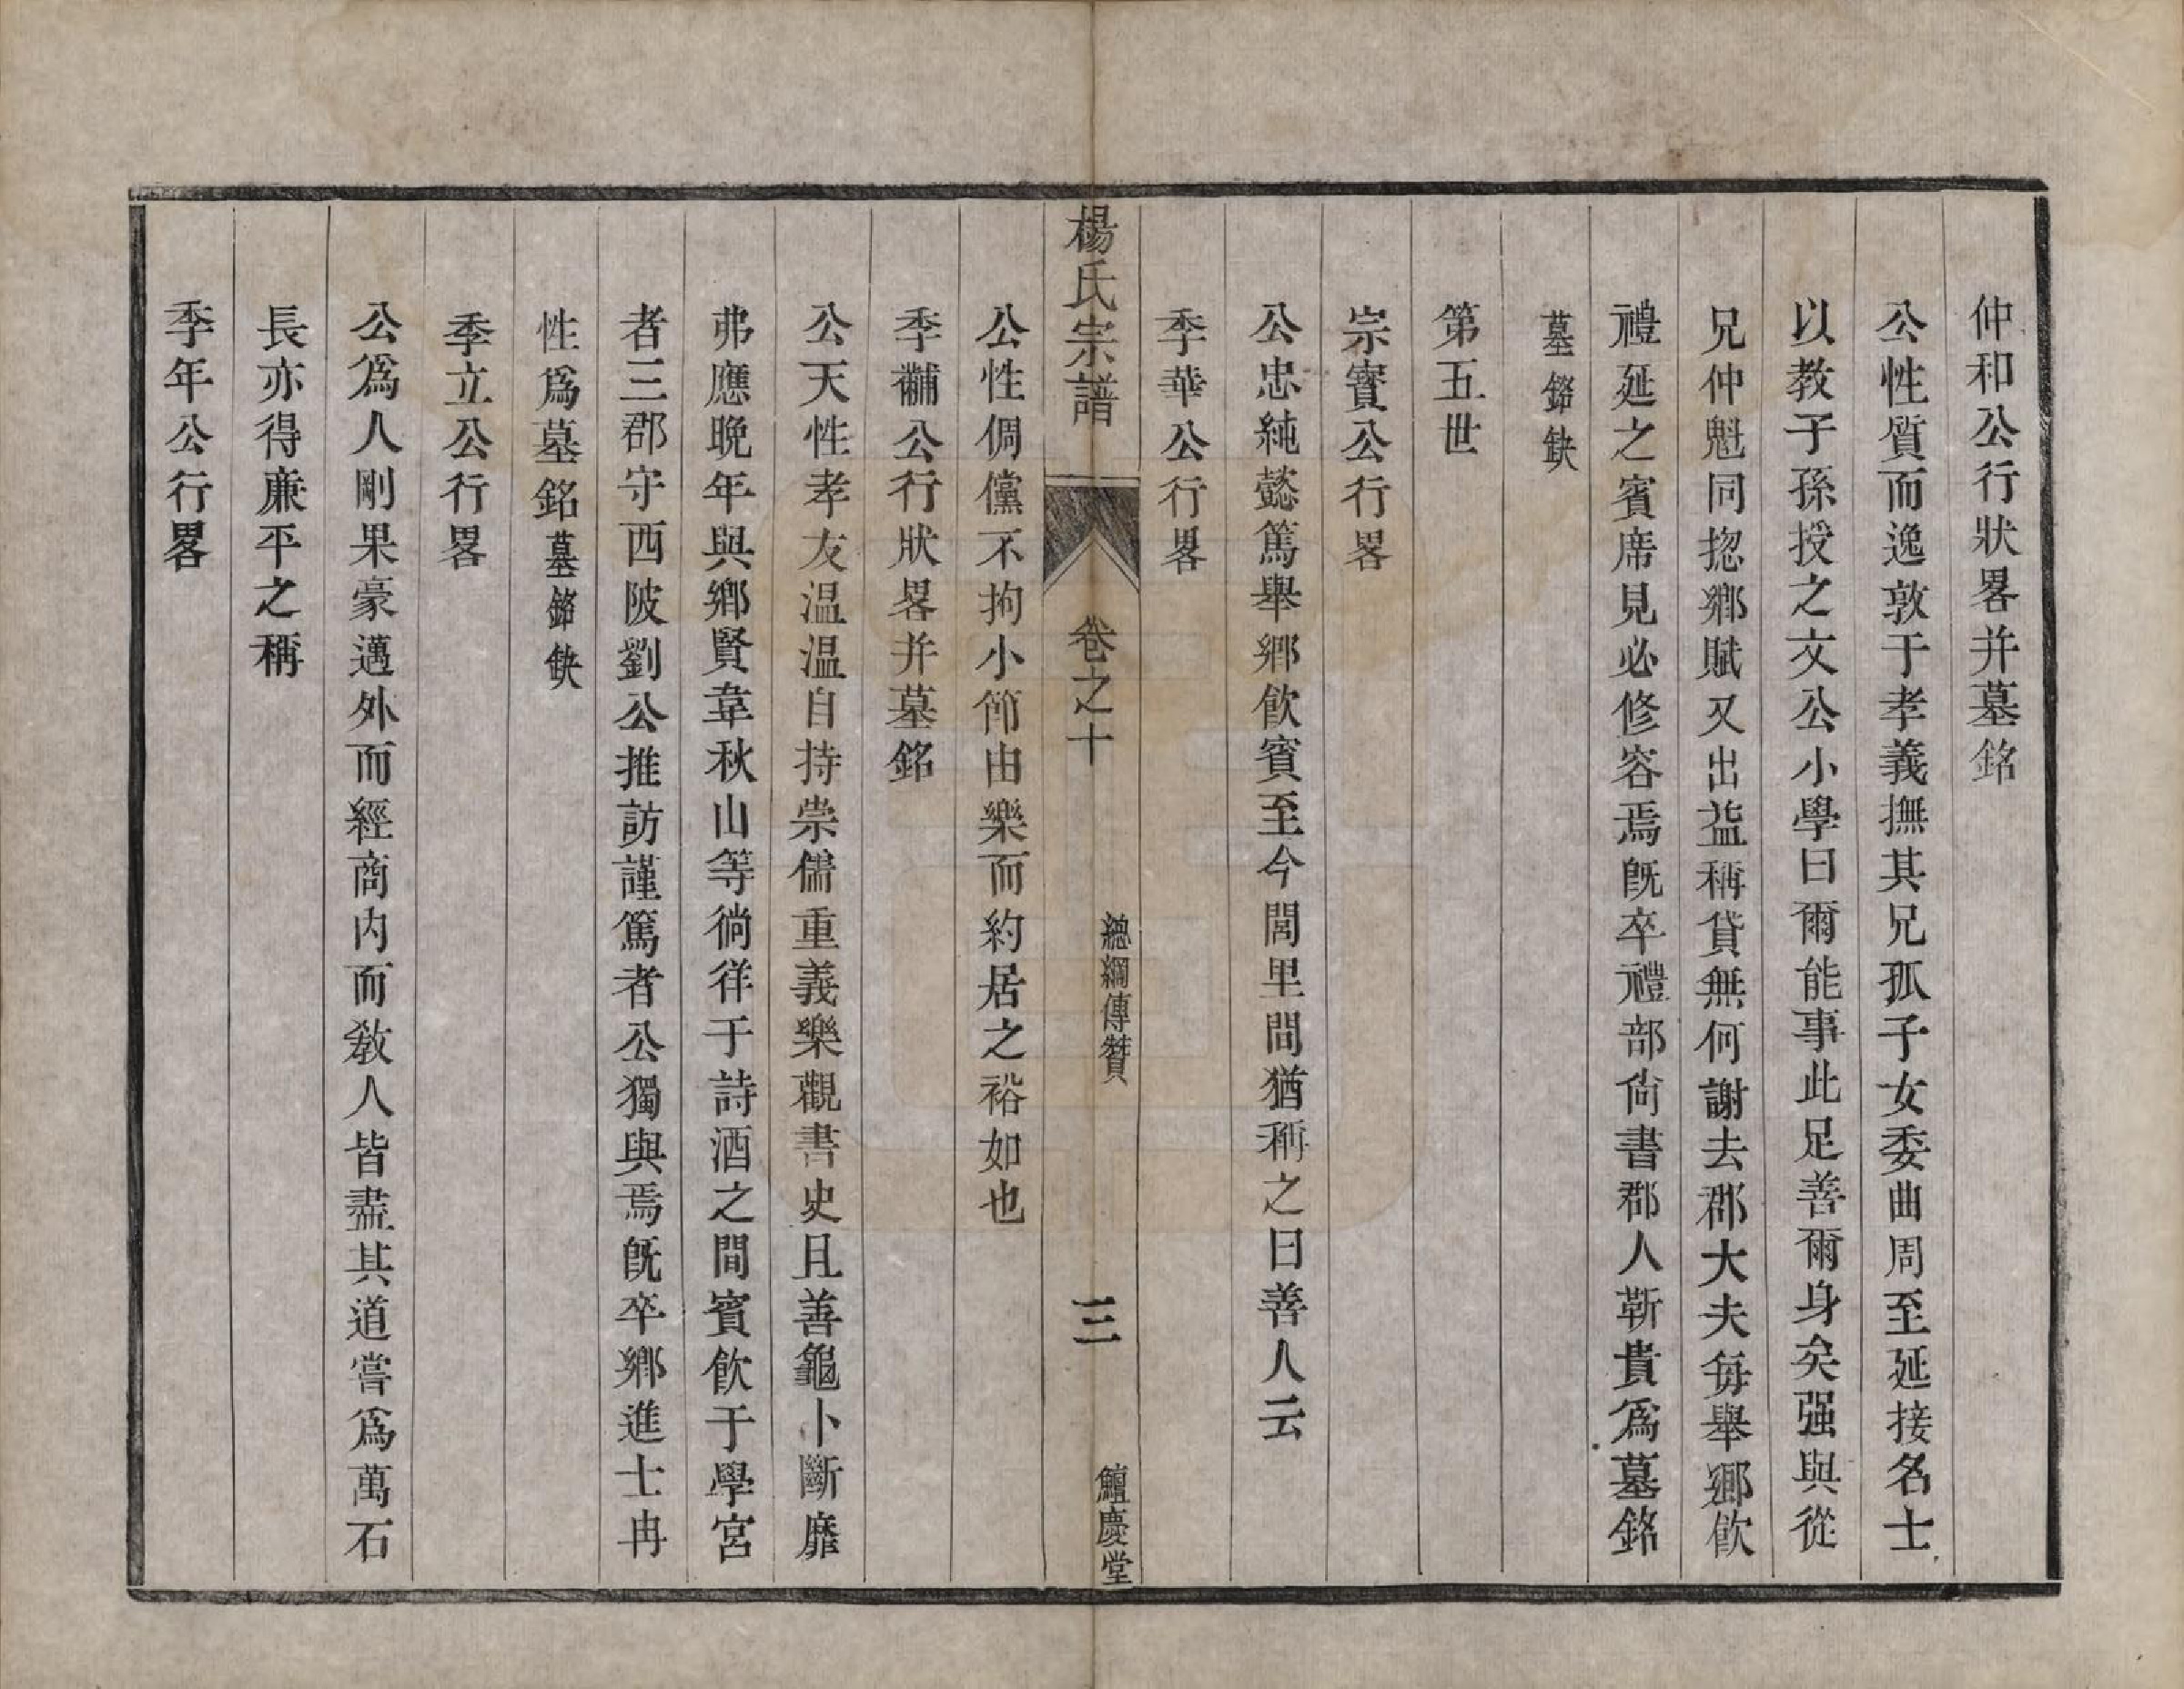 仲和公行狀畧并墓銘
公性質而逸敦于孝義撫其兄孤子女委曲周至延接名士
以教子孫授之文公小學曰爾能事此足善爾身矣强與從
兄仲魁同揔鄉賦又出益稱貸無何謝去郡大夫每舉鄉飮
禮延之賓席見必修容焉旣卒禮部尙書郡人靳貴爲墓銘
墓銘缺
第五世
宗實公行畧
公忠純懿篤舉鄉飮賓至今閭里間猶稱之曰善人云
季華公行畧
楊氏宗譜
卷之十
總綱傳贊
三
鱣慶堂
公性倜儻不拘小節由樂而約居之裕如也
季黼公行狀畧并墓銘
公天性孝友温温自持崇儒重義樂觀書史且善龜卜斷靡
弗應晚年與鄉賢韋秋山等徜徉于詩酒之間賓飮于學宮
者三郡守西陂劉公推訪謹篤者公獨與焉旣卒鄉進士冉
性爲墓銘墓銘缺
季立公行畧
公爲人剛果豪邁外而經商内而敎人皆盡其道嘗爲萬石
長亦得廉平之稱
季年公行畧